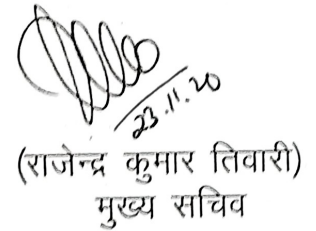 23.11.20
(राजेन्द्र कुमार तिवारी)
मुख्य सचिव